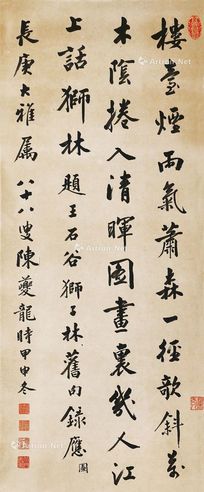 樓臺煙雨氣蕭森一徑欹斜萬
木陰捲入清暉圖畫裏幾人江
上話獅林題王石谷獅子林舊句錄應
圖
長庚大雅屬八十八叟陳夔龍時甲申冬